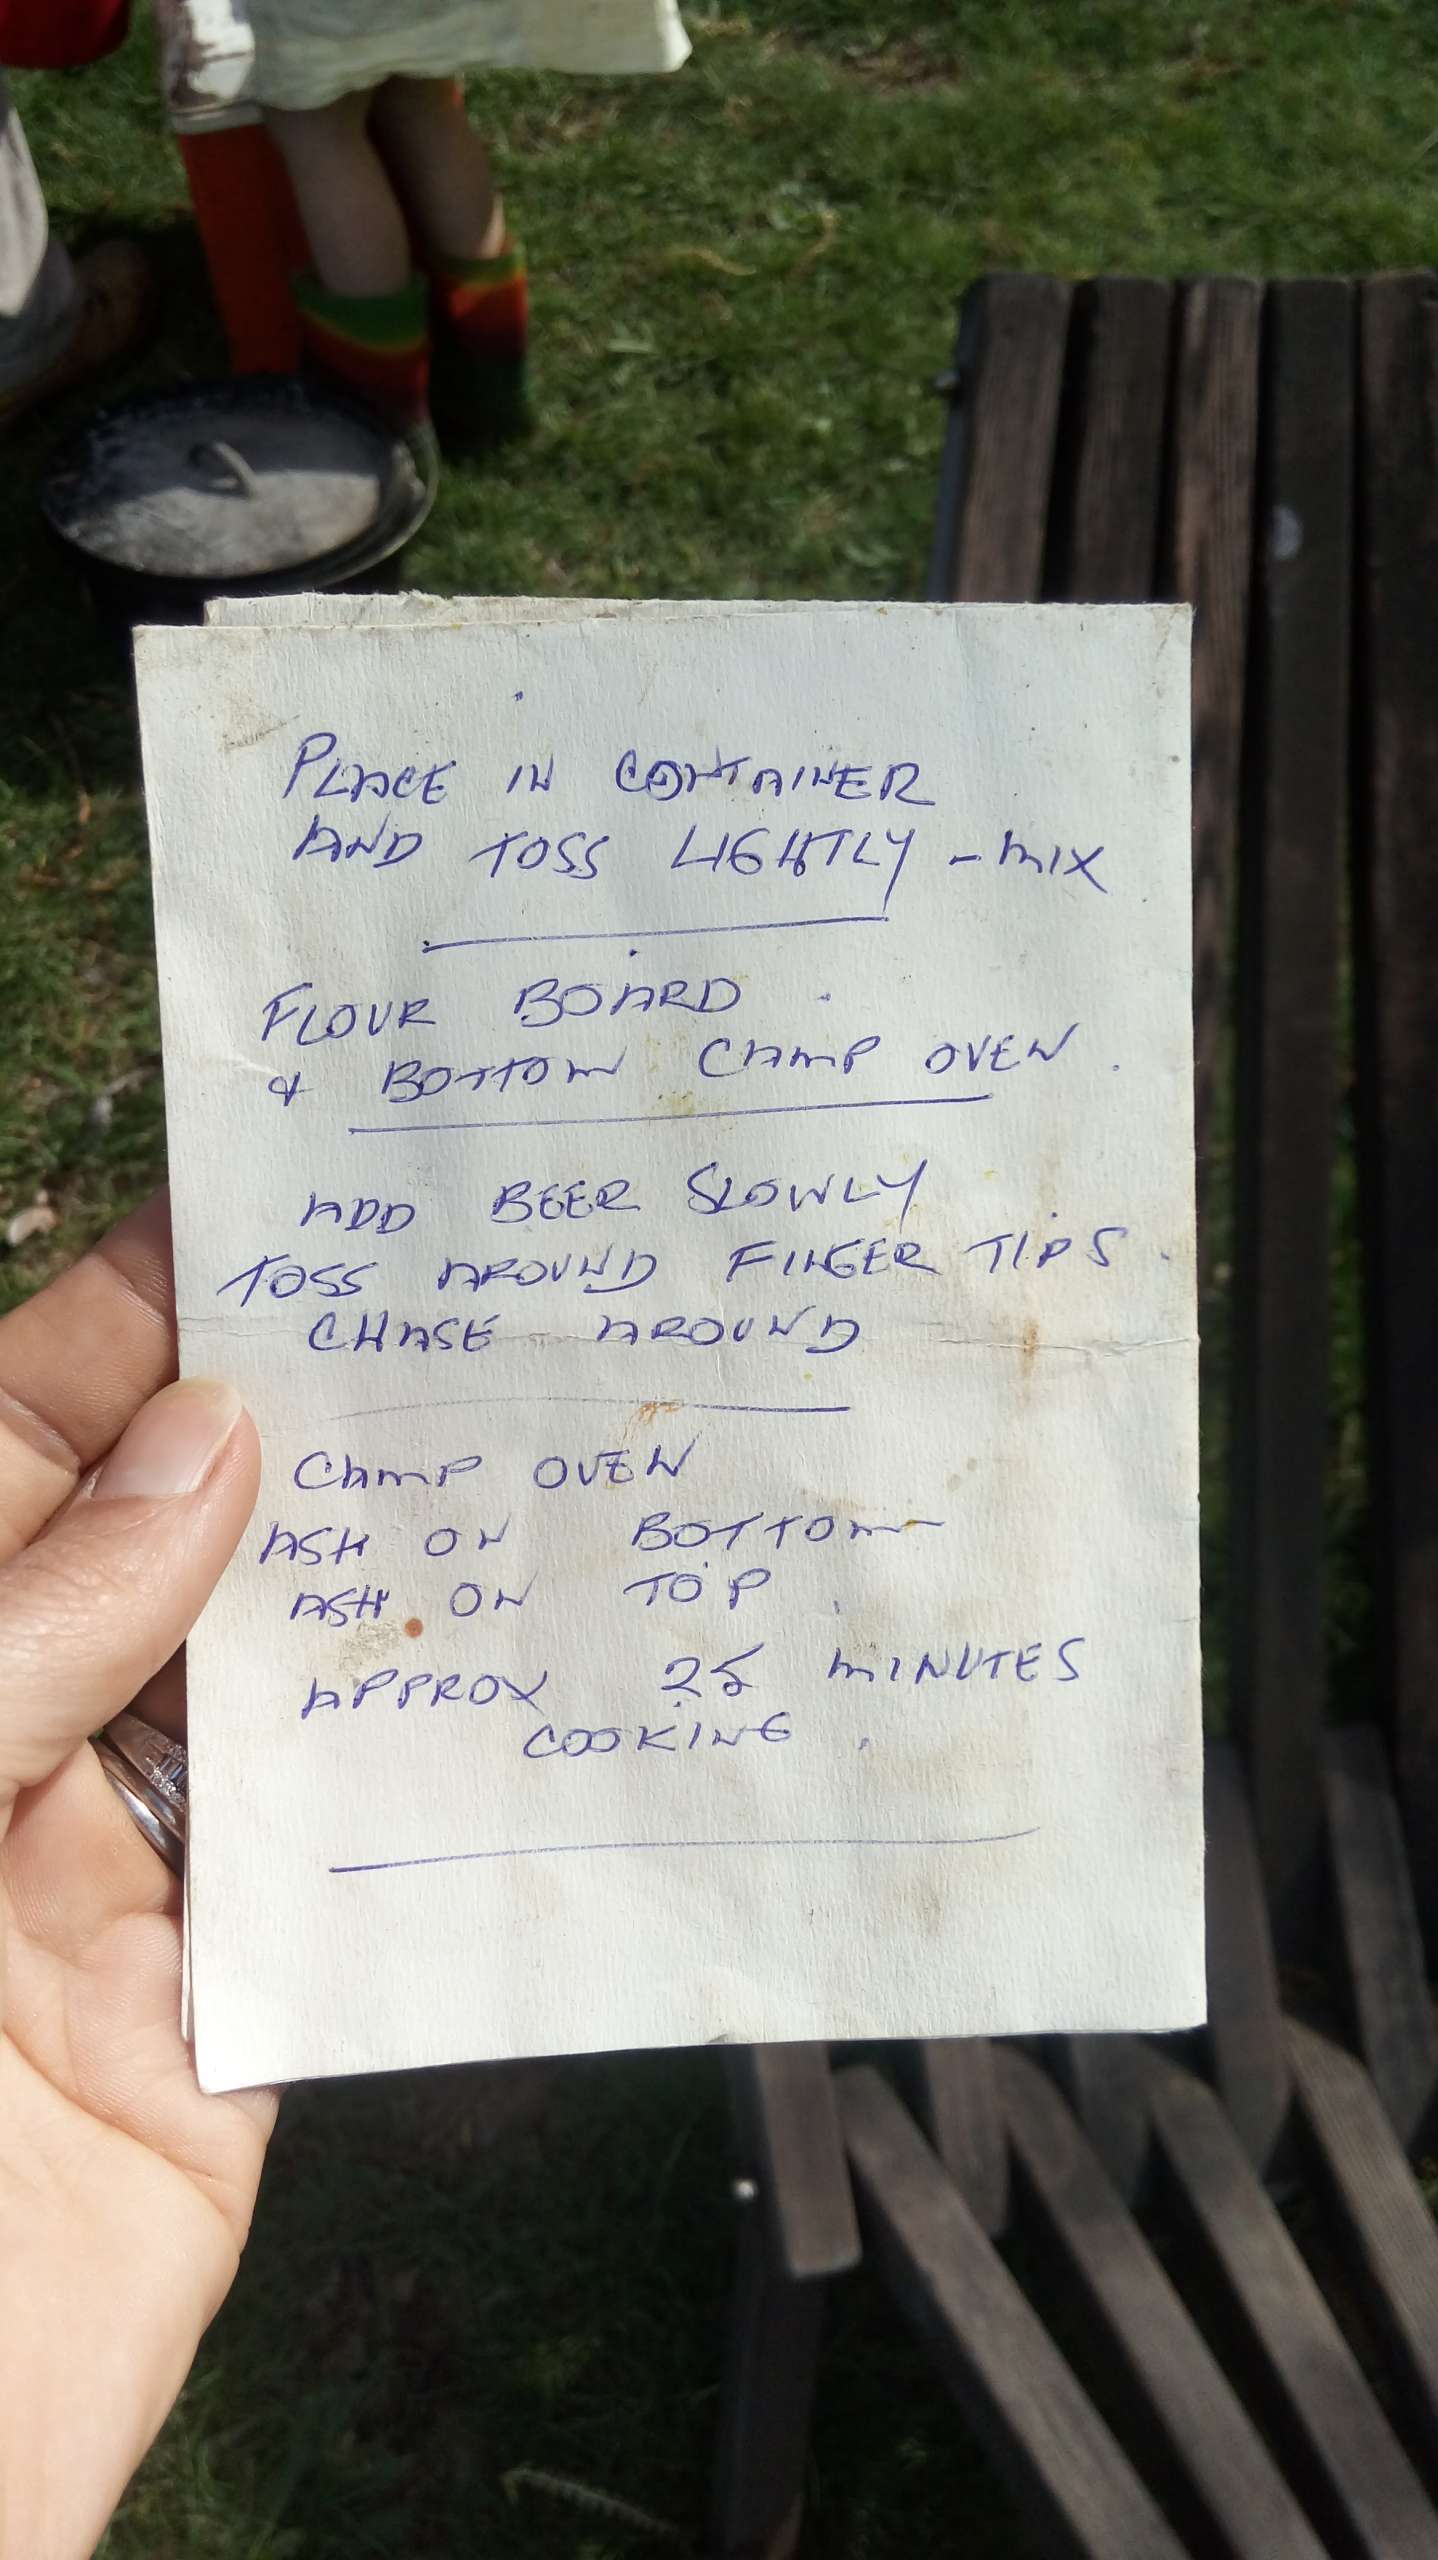 PLACE IN CONTAINER
AND TOSS LIGHTLY - MIX
FLOUR BOARD.
& BOTTOM CAMP OVEN.
ADD BEER SLOWLY
TOSS AROUND FINGER TIPS.
CHASE AROUND
CAMP OVEN
ASH ON BOTTOM
ASH ON TOP.
APPROX 25 MINUTES
COOKING.